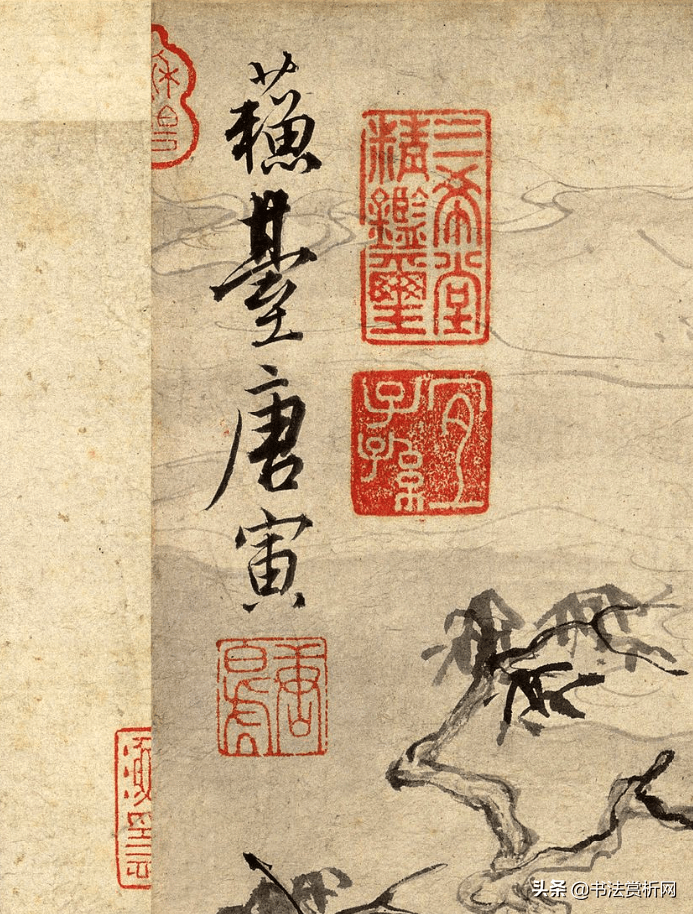 三希堂
精鑑璽
宜
子孫
蘓臺唐寅
唐
白虎
头条 @书法赏析网